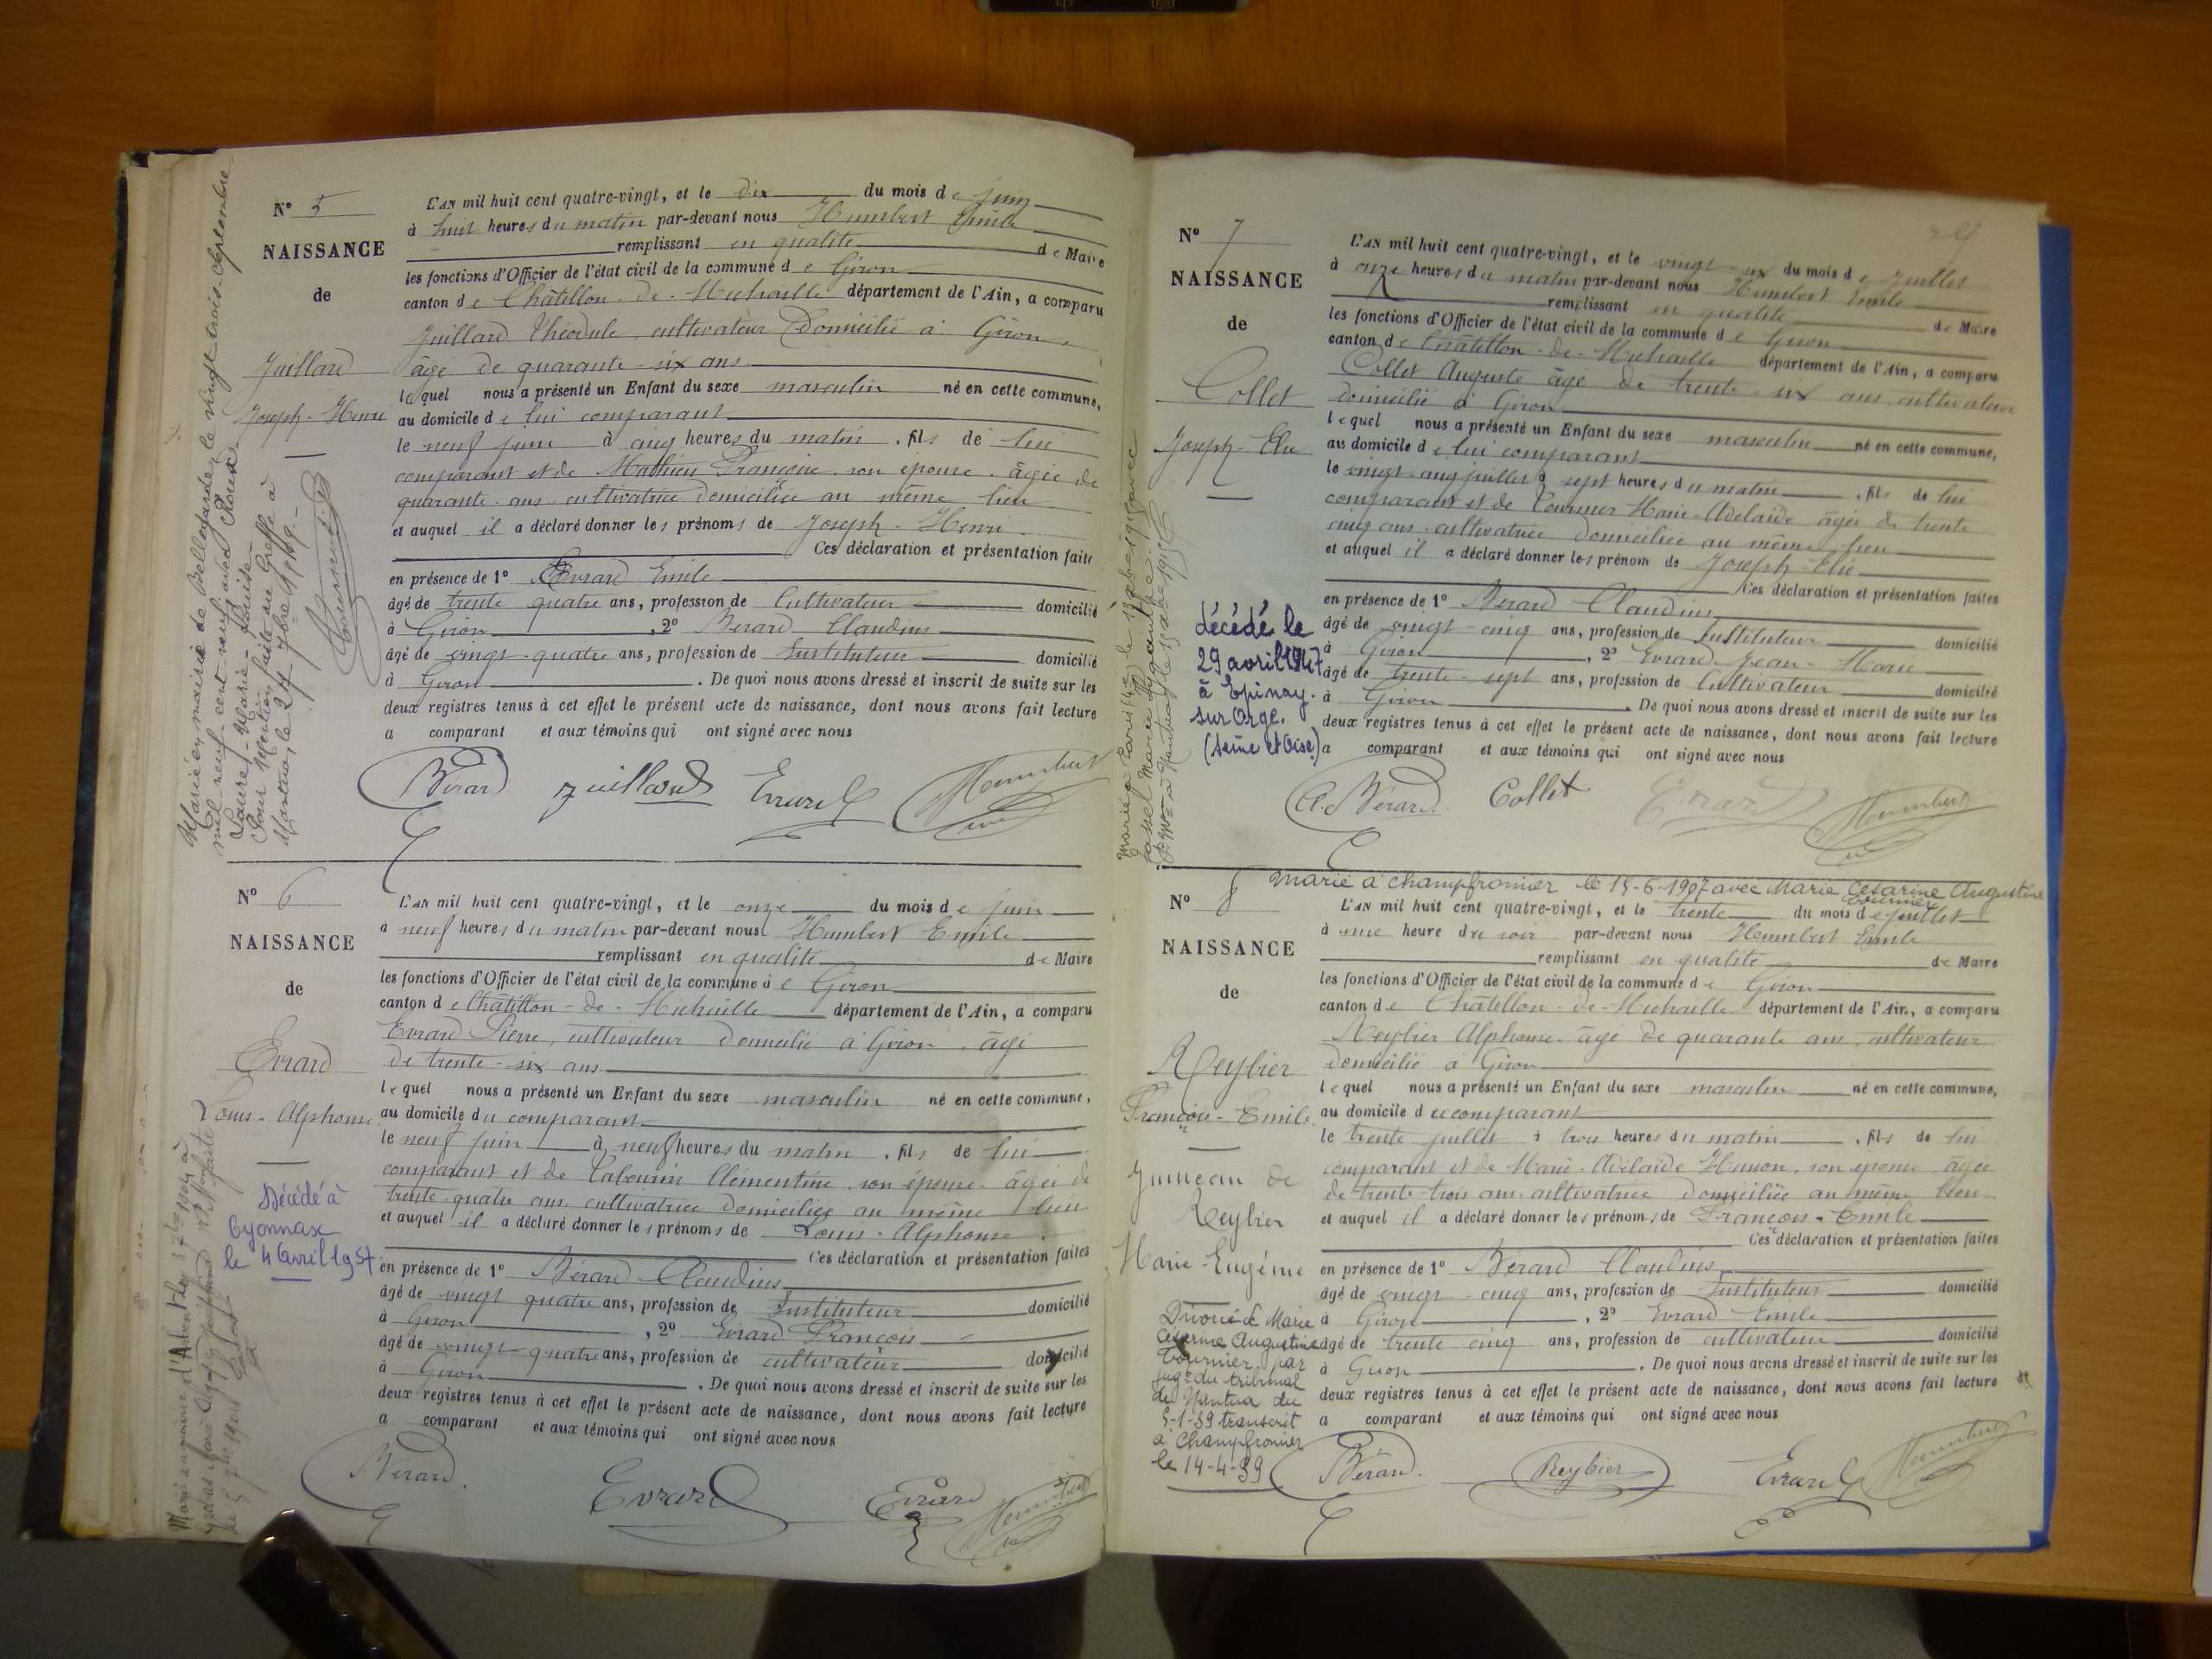 N° 5
NAISSANCE
de
Juillard
Joseph-Henri
L'AN mil huit cent quatre-vingt, et le dix du mois de juin
à huit heures du matin par-devant nous Humbert Emile
remplissant en qualité de Maire
les fonctions d'Officier de l'état civil de la commune de Giron
canton de Châtillon-de-Michaille département de l'Ain, a comparu
Juillard Théodule, cultivateur domicilié à Giron,
âgé de quarante-six ans
lequel nous a présenté un Enfant du sexe masculin né en cette commune,
au domicile de lui comparant
le neuf juin à cinq heures du matin, fils de lui
comparant et de Mathieu Françoise son épouse, âgée de
quarante ans cultivatrice domiciliée au même lieu
et auquel il a déclaré donner les prénoms de Joseph-Henri.
Ces déclaration et présentation faites
en présence de 1° Evrard Emile
âgé de trente quatre ans, profession de Cultivateur domicilié
à Giron, 2° Bérard Claudius
âgé de vingt-quatre ans, profession de Instituteur domicilié
à Giron. De quoi nous avons dressé et inscrit de suite sur les
deux registres tenus à cet effet le présent acte de naissance, dont nous avons fait lecture
a comparant et aux témoins qui ont signé avec nous
Bérard Juillard Evrard Humbert
Marié en mairie de Bellegarde, le vingt-trois Septembre
mil neuf cent neuf, avec
Laure-Marie-Louise
Pour Mention faite au Greffe à
Nantua, le 24 7bre 1909.
N° 6
NAISSANCE
de
Evrard
Louis-Alphonse
Décédé à
Oyonnax
le 4 Avril 1957
L'AN mil huit cent quatre-vingt, et le onze du mois de juin
à neuf heures du matin par-devant nous Humbert Emile
remplissant en qualité de Maire
les fonctions d'Officier de l'état civil de la commune de Giron
canton de Châtillon-de-Michaille département de l'Ain, a comparu
Evrard Pierre, cultivateur domicilié à Giron, âgé
de trente-six ans
lequel nous a présenté un Enfant du sexe masculin né en cette commune,
au domicile du comparant
le neuf juin à neuf heures du matin, fils de lui
comparant et de Clémentine son épouse âgée de
trente-quatre ans, cultivatrice domiciliée au même lieu
et auquel il a déclaré donner les prénoms de Louis-Alphonse.
Ces déclaration et présentation faites
en présence de 1° Bérard Claudius
âgé de vingt quatre ans, profession de Instituteur domicilié
à Giron, 2° Evrard François
âgé de vingt-quatre ans, profession de cultivateur domicilié
à Giron. De quoi nous avons dressé et inscrit de suite sur les
deux registres tenus à cet effet le présent acte de naissance, dont nous avons fait lecture
a comparant et aux témoins qui ont signé avec nous
Bérard Evrard Evrard Humbert
N° 7
NAISSANCE
de
Collet
Joseph-Elie
décédé le
29 avril 1947
à Epinay
sur Orge.
(Seine et Oise)
L'AN mil huit cent quatre-vingt, et le vingt-six du mois de juillet
à onze heures du matin par-devant nous Humbert Emile
remplissant en qualité de Maire
les fonctions d'Officier de l'état civil de la commune de Giron
canton de Châtillon-de-Michaille département de l'Ain, a comparu
Collet Auguste âgé de trente-six ans cultivateur
domicilié à Giron
lequel nous a présenté un Enfant du sexe masculin né en cette commune,
au domicile de lui comparant
le vingt-cinq juillet à sept heures du matin, fils de lui
comparant et de Tournier Marie-Adelaïde âgée de trente
cinq ans cultivatrice domiciliée au même lieu
et auquel il a déclaré donner les prénom de Joseph-Elie
Ces déclaration et présentation faites
en présence de 1° Bérard Claudius
âgé de vingt-cinq ans, profession de Instituteur domicilié
à Giron, 2° Evrard Jean-Marie
âgé de trente-sept ans, profession de Cultivateur domicilié
à Giron. De quoi nous avons dressé et inscrit de suite sur les
deux registres tenus à cet effet le présent acte de naissance, dont nous avons fait lecture
a comparant et aux témoins qui ont signé avec nous
Cl. Bérard Collet Evrard Humbert
marié à Champfromier le 15-6-1907 avec Marie Césarine Augustine
Tournier
N° 8
NAISSANCE
de
Reybier
François-Emile
Jumeau de
Reybier
Marie-Eugénie
Divorcé de Marie
Césarine Augustine
Tournier par
jugt du tribunal
de Nantua du
5-1-39 transcrit
à Champfromier
le 14-4-39
L'AN mil huit cent quatre-vingt, et le trente du mois de juillet
à une heure du soir par-devant nous Humbert Emile
remplissant en qualité de Maire
les fonctions d'Officier de l'état civil de la commune de Giron
canton de Châtillon-de-Michaille département de l'Ain, a comparu
Reybier Alphonse âgé de quarante ans, cultivateur
domicilié à Giron
lequel nous a présenté un Enfant du sexe masculin né en cette commune,
au domicile du comparant
le trente juillet à trois heures du matin, fils de lui
comparant et de Marie-Adélaïde son épouse âgée
de trente-trois ans cultivatrice domiciliée au même lieu
et auquel il a déclaré donner les prénoms de François-Emile
Ces déclaration et présentation faites
en présence de 1° Bérard Claudius
âgé de vingt-cinq ans, profession de Instituteur domicilié
à Giron, 2° Evrard Emile
âgé de trente cinq ans, profession de cultivateur domicilié
à Giron. De quoi nous avons dressé et inscrit de suite sur les
deux registres tenus à cet effet le présent acte de naissance, dont nous avons fait lecture
a comparant et aux témoins qui ont signé avec nous
Bérard Reybier Evrard Humbert